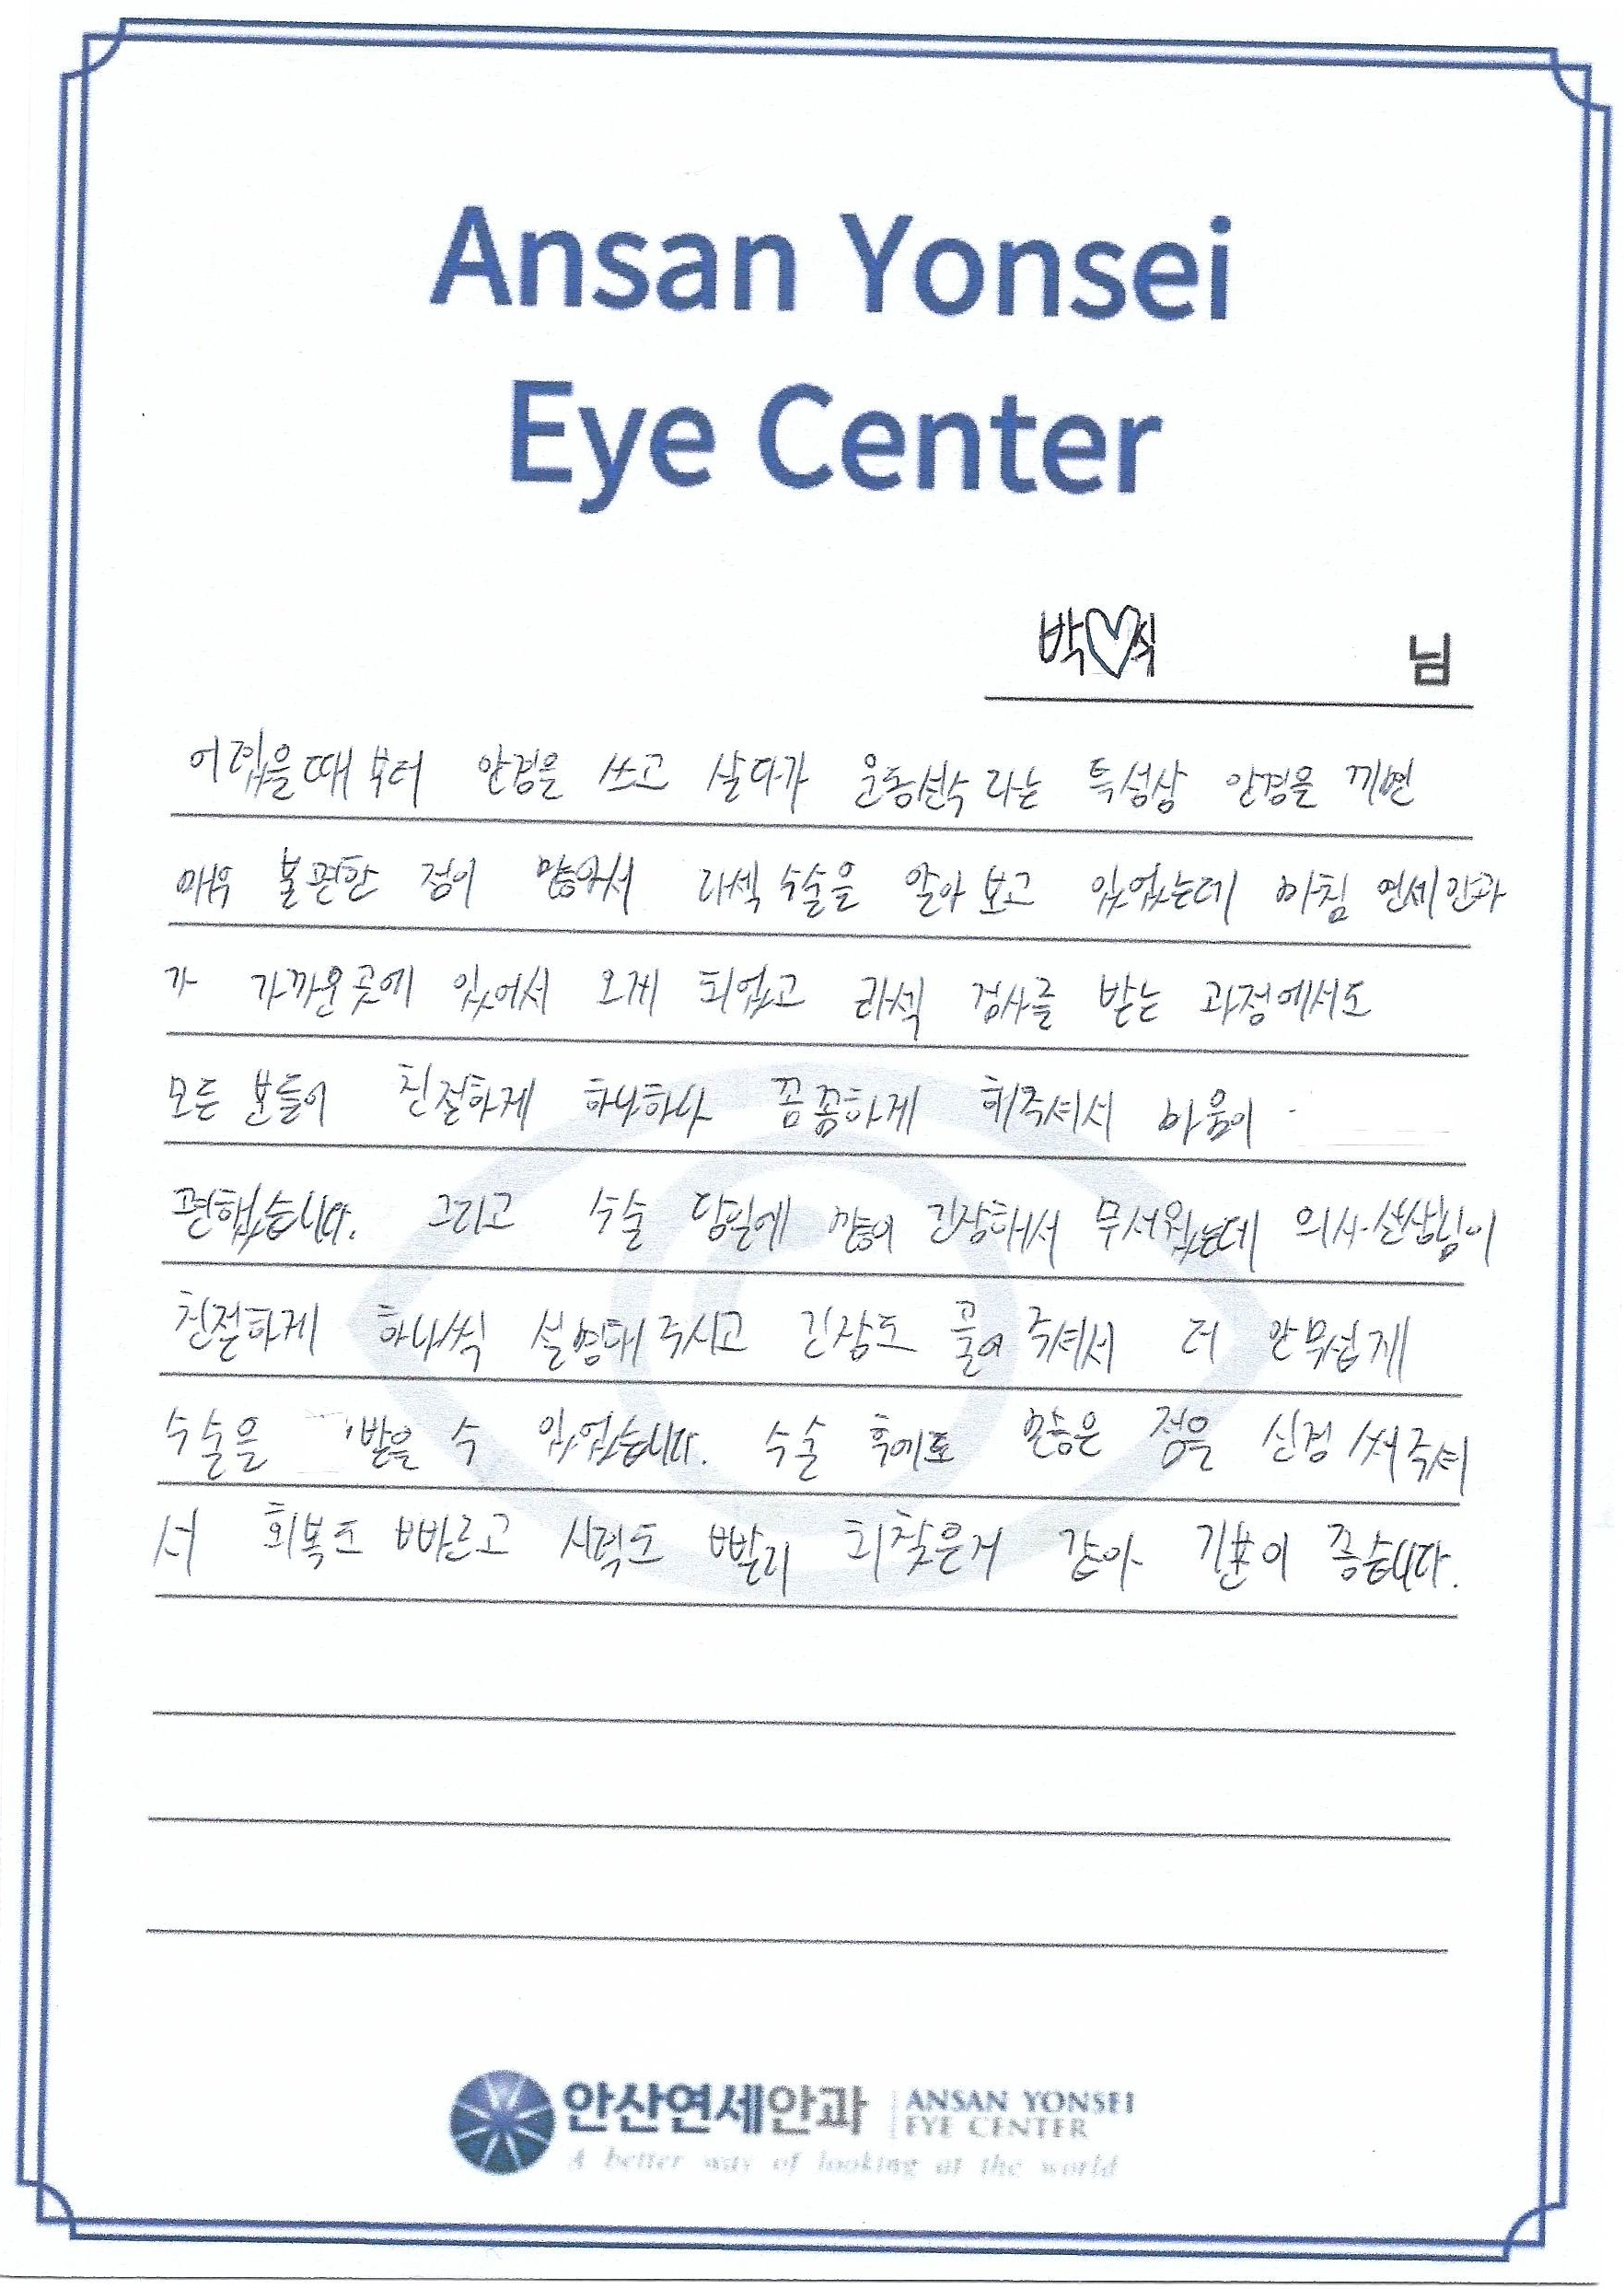 Ansan Yonsei
Eye Center
박♡식 님
어렸을때 부터 안경을 쓰고 살다가 운동선수 라는 특성상 안경을 끼면
매우 불편한 점이 많아서 라섹 수술을 알아 보고 있었는데 마침 연세안과
가 가까운 곳에 있어서 오게 되었고 라섹 검사를 받는 과정에서도
모든 분들이 친절하게 하나하나 꼼꼼하게 해주셔서 마음이
편했습니다. 그리고 수술 당일에 많이 긴장해서 무서웠는데 의사선생님이
친절하게 하나씩 설명해 주시고 긴장도 풀어 주셔서 더 안무섭게
수술을 받을 수 있었습니다. 수술 후에도 많은 점을 신경 써주셔
서 회복도 빠르고 시력도 빨리 되찾은거 같아 기분이 좋습니다.
안산연세안과 ANSAN YONSEI
EYE CENTER
A better way of looking at the world